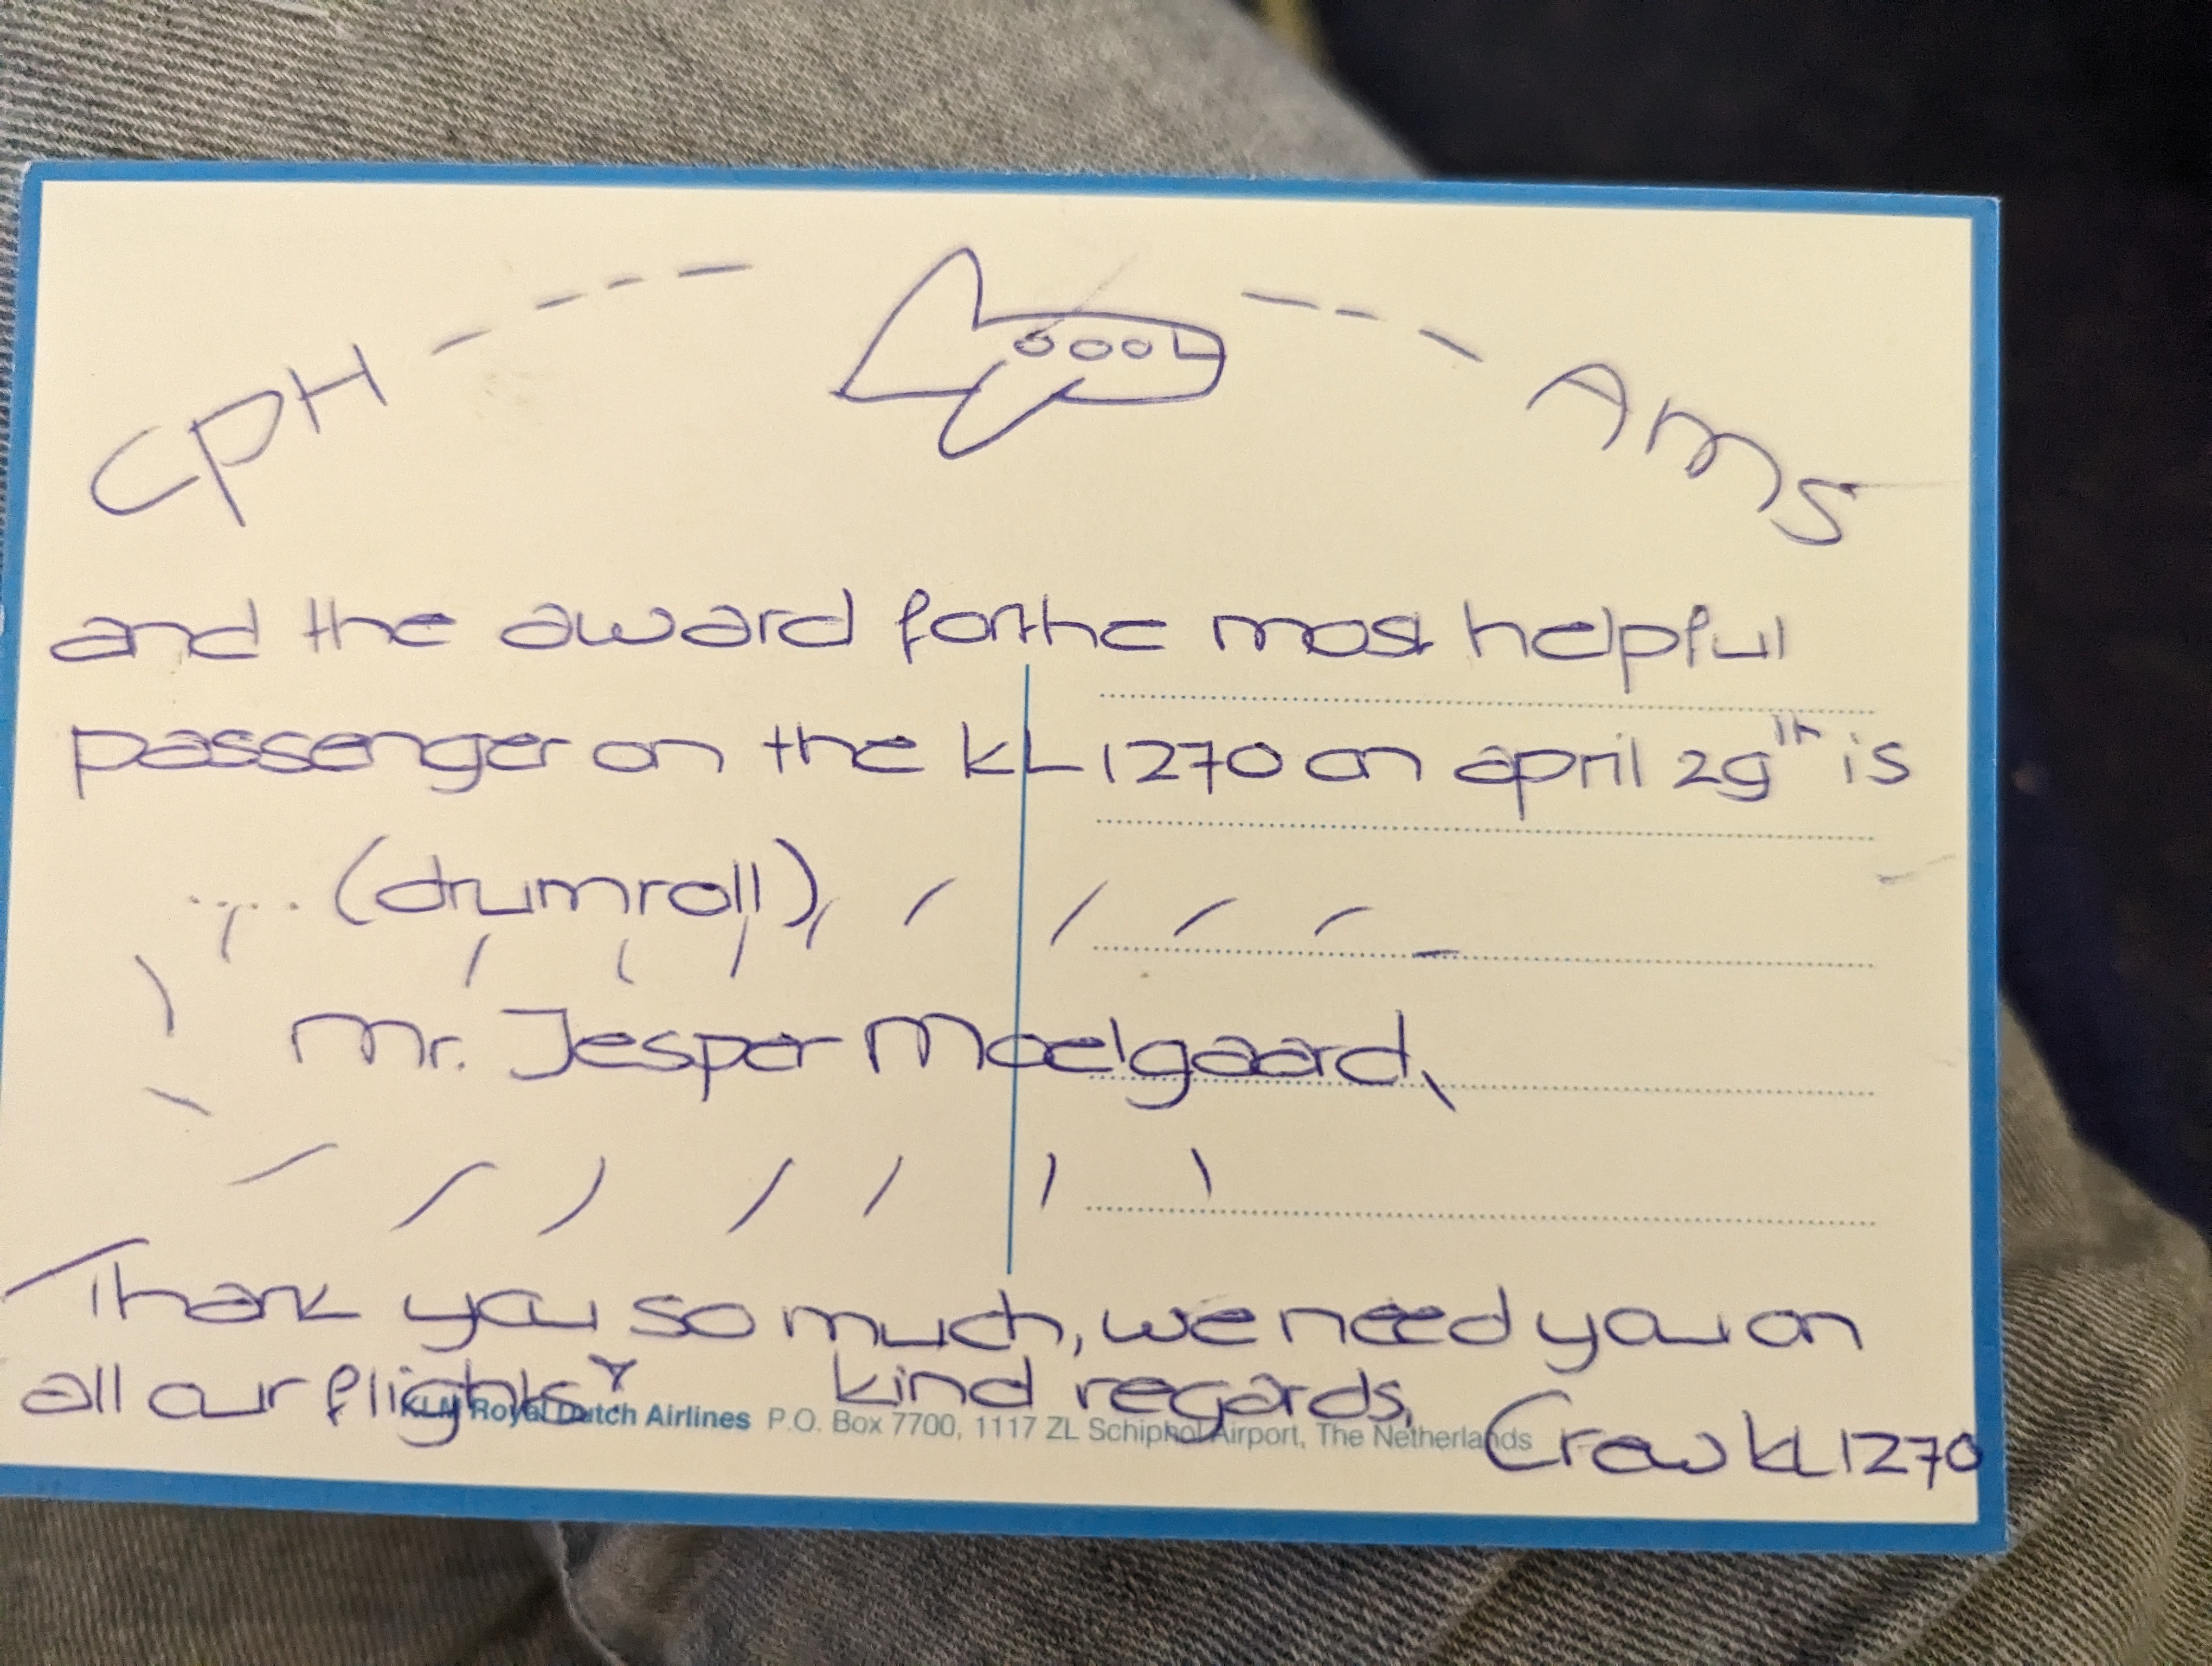 CPH AMS
and the award for the most helpful
passenger on the KL 1270 on april 29th is
..... (drumroll)
Mr. Jesper Moelgaard,
Thank you so much, we need you on
all our flights! kind regards,
Crew KL1270
KLM Royal Dutch Airlines P.O. Box 7700, 1117 ZL Schiphol Airport, The Netherlands